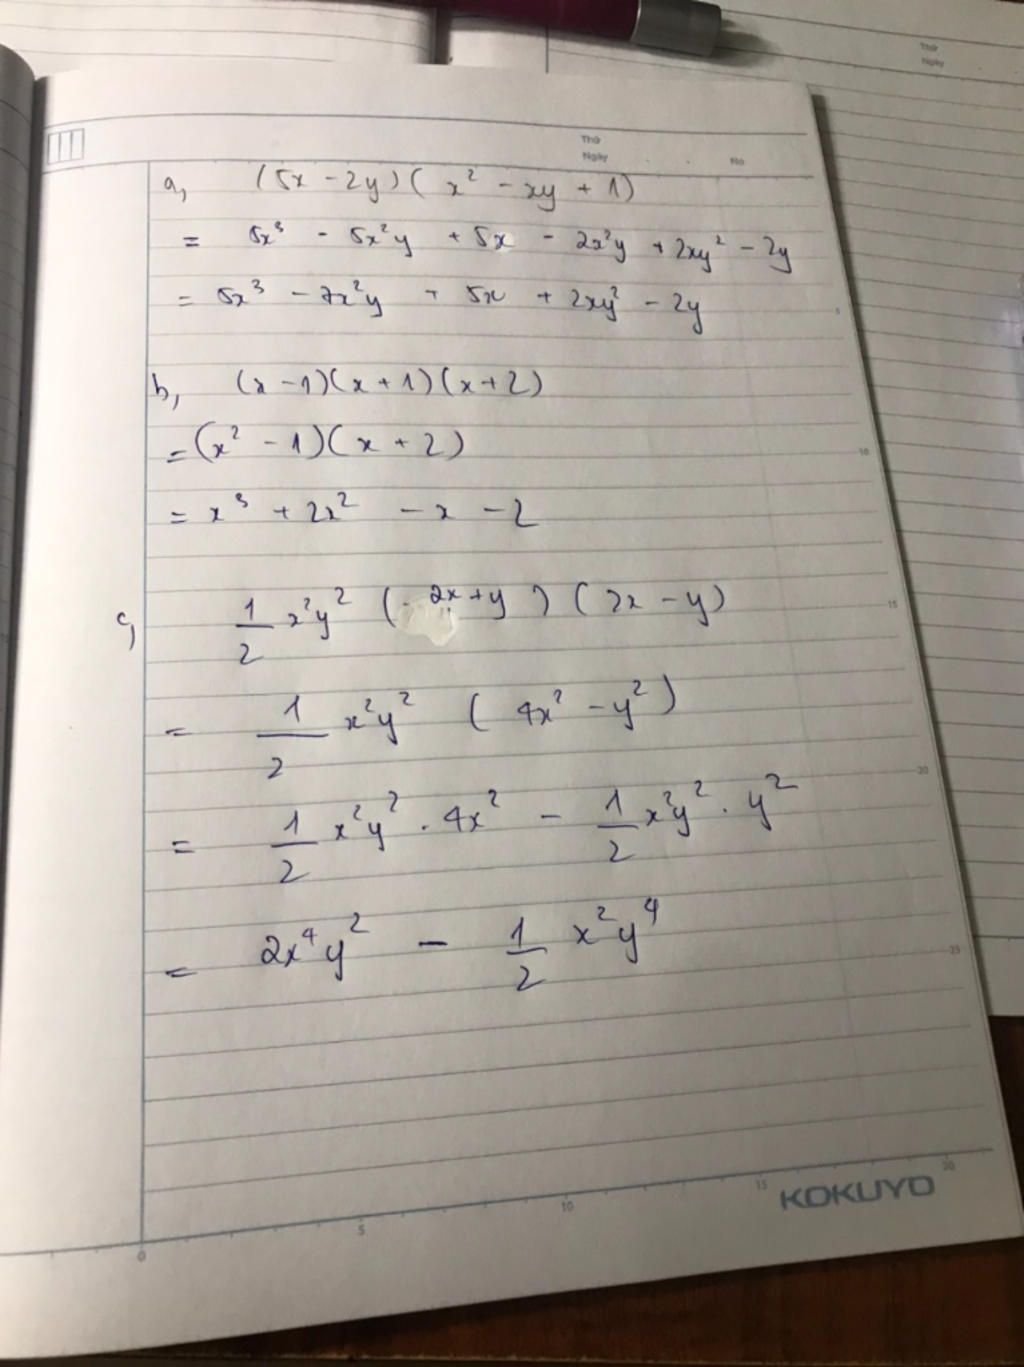 Thứ
Ngày
Thứ
Ngày
No
a, (5x - 2y)(x² - xy + 1)
= 5x³ - 5x²y + 5x - 2x²y + 2xy² - 2y
= 5x³ - 7x²y + 5x + 2xy² - 2y
5
b, (x - 1)(x + 1)(x + 2)
= (x² - 1)(x + 2)
10
= x³ + 2x² - x - 2
c, 1/2 x²y² (2x + y)(2x - y)
15
= 1/2 x²y² (4x² - y²)
20
= 1/2 x²y² . 4x² - 1/2 x²y² . y²
= 2x⁴y² - 1/2 x²y⁴
25
0 5 10 15 20
KOKUYO